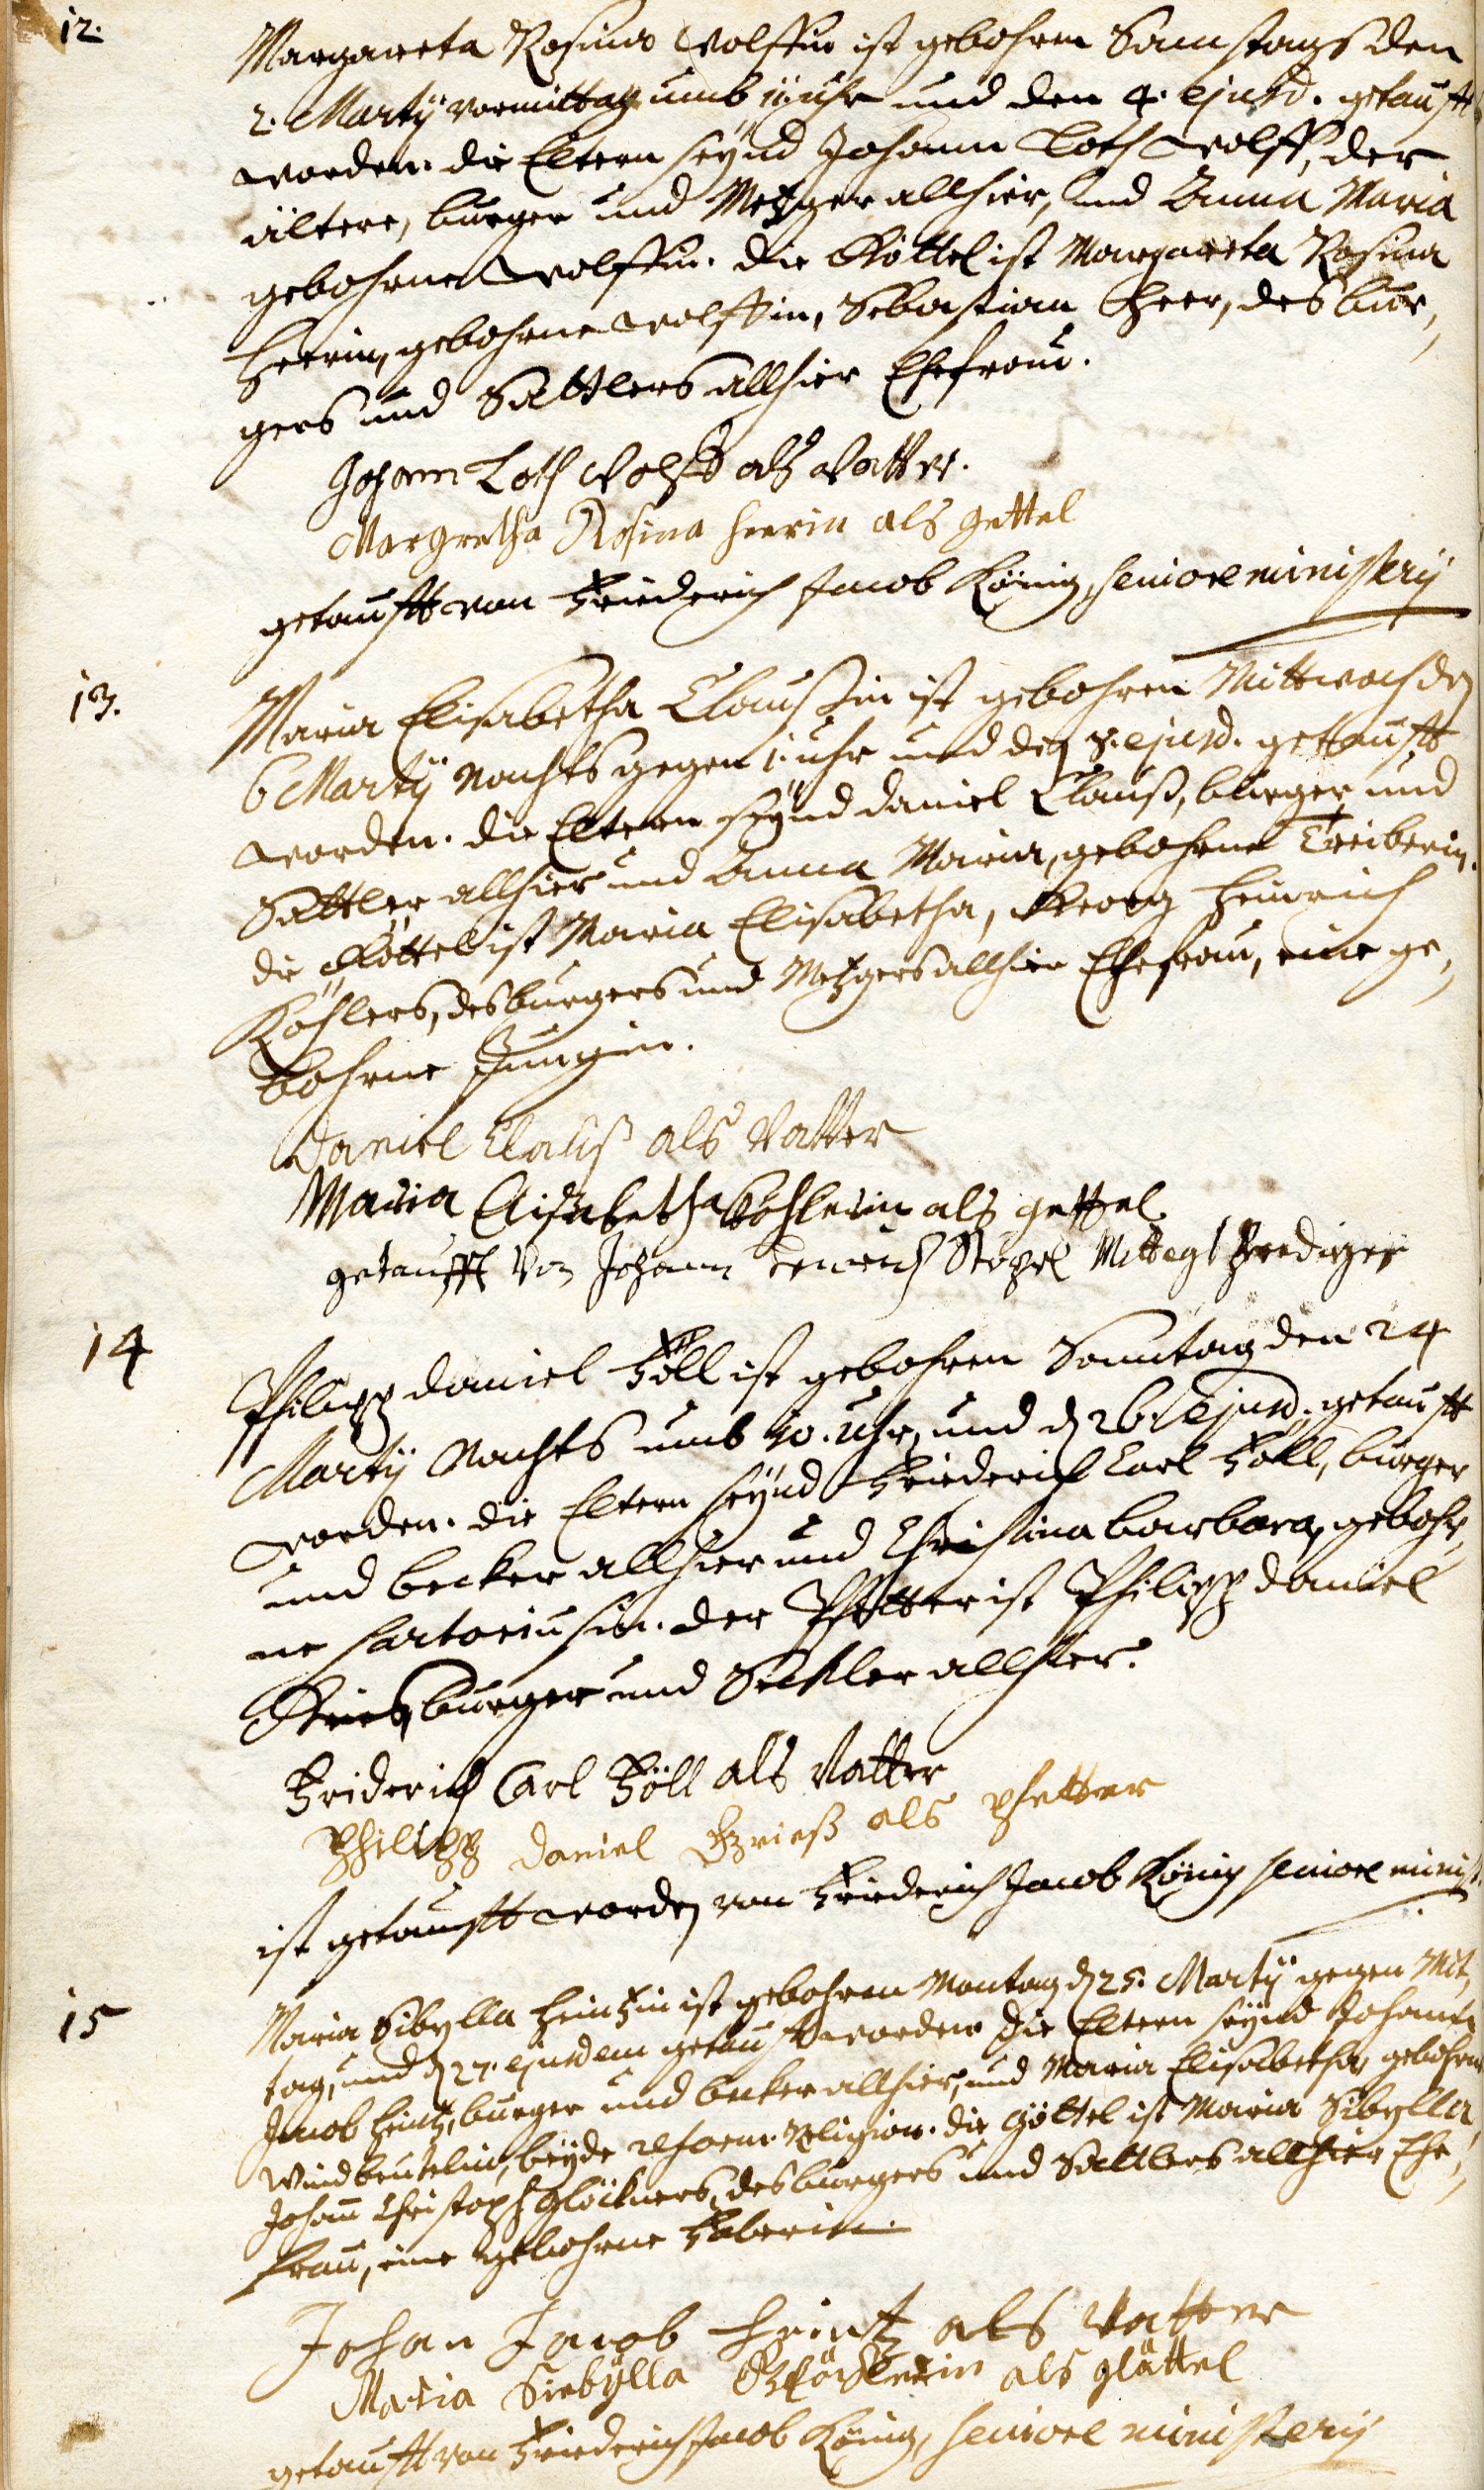 12.
Margareta Rosina Wolffin ist gebohren Samstags den
2. Martÿ vormittag umb 11 uhr und den 4. ejusd. getaufft
worden. die Eltern seÿnd Johann Loth Wolff, der
ältere, burger und Metzger allhier, und Anna Maria
gebohrne Wolffin. die Göttel ist Margareta Rosina
Heerin, gebohrne Wolffin, Sebastian Heer, des bur,
gers und Sattlers allhier Ehefrau.
Johann Loth Wolff als Vatter.
Margretha Rosina heerin als gettel
getaufft von Friederich Jacob König, seniore ministerÿ
13.
Maria Elisabetha Claußin ist gebohren Mittwoch den
6 Martÿ Nachts gegen 1. uhr und den 8. ejusd. getaufft
worden. die Eltern seÿnd Daniel Clauß, burger und
Sattler allhier und Anna Maria, gebohrne Treiberin.
die Göttel ist Maria Elisabetha, Georg Heinrich
Köhlers, des burgers und Metzgers allhier Ehefrau, eine ge,
bohrne Jungin.
Daniel Clauß als Vatter
Maria Elisabetha Köhlerin als gettel
getaufft von Johann Stöpel Mittags Prediger
14
Philipp Daniel Föll ist gebohren Sonntag den 24
Martÿ Nachts umb 10. Uhr, und den 26. ejusd. getaufft
worden. die Eltern seÿnd Friederich Carl Föll, burger
und becker allhier und Christina barbara, gebohr,
ne Sartoriusin. der Pfetter ist Philipp Daniel
Grieß, burger und Seckler allhier.
Friderich Carl Föll als Vatter
Philipp Daniel Grieß als pfetter
ist getaufft worden von Friederich Jacob König seniore minist.
15
Maria Sibylla Heintzin ist gebohren Montag den 25. Martÿ gegen Mit,
tag, und den 27. ejusdem getaufft worden die Eltern seÿnd Johann
Jacob Heintz, burger und becker allhier, und Maria Elisabetha, gebohrne
Windbeutelin, beÿde reform. Religion. die Göttel ist Maria Sibylla,
Johann Christoph Glöckners, des burgers und Sattlers allhier Ehe,
frau, eine gebohrne Faberin.
Johan Jacob Heintz als Vatter
Maria Siebÿlla Glöcknerin als gättel
getaufft von Friederich Jacob König, seniore ministerÿ